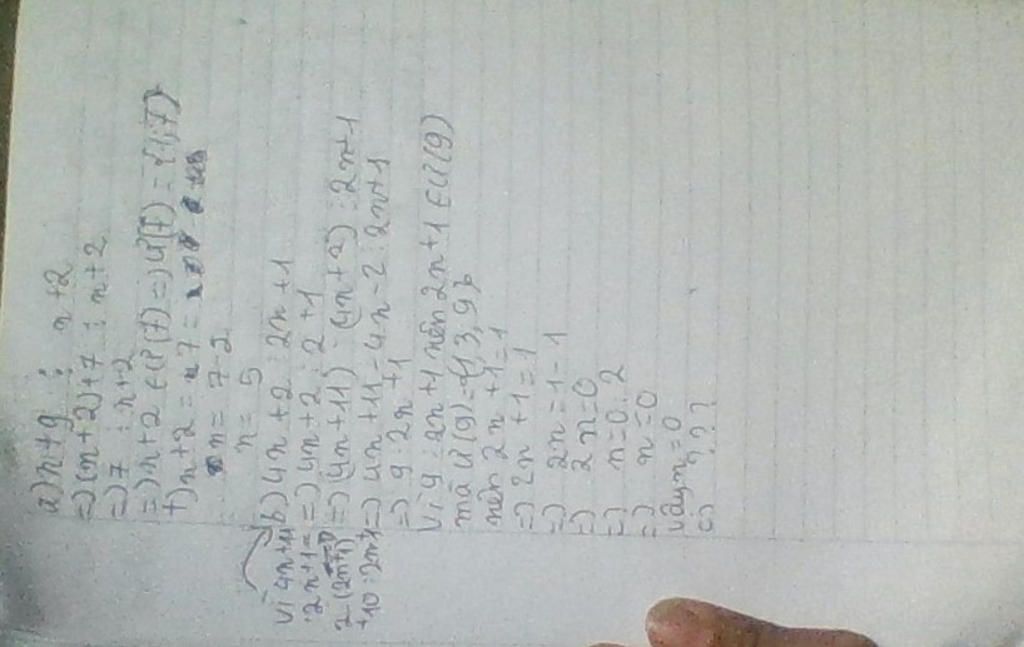 a) n+9 ⋮ n+2
=) (n+2)+7 ⋮ n+2
=) 7 ⋮ n+2
=) n+2 ∈ Ư(7) =) Ư(7) = {1;7}
+) n+2 = 7 =
n = 7-2
n = 5
b) 4n+2 ⋮ 2n+1
=) 4n+2 ⋮ 2+1
=) (4n+11) - (4n+2) ⋮ 2n+1
=) 4n+11 - 4n-2 ⋮ 2n+1
=) 9 ⋮ 2n+1
Vì 9 ⋮ 2n+1 nên 2n+1 ∈ Ư(9)
mà Ư(9)={1,3,9}
nên 2n+1=1
=) 2n+1=1
=) 2n=1-1
=) 2n=0
=) n=0:2
=) n=0
Vậy n=0
c) ???
Vì 4n+11
2n+1=
2(2n+1)
+10 ⋮ 2n+1